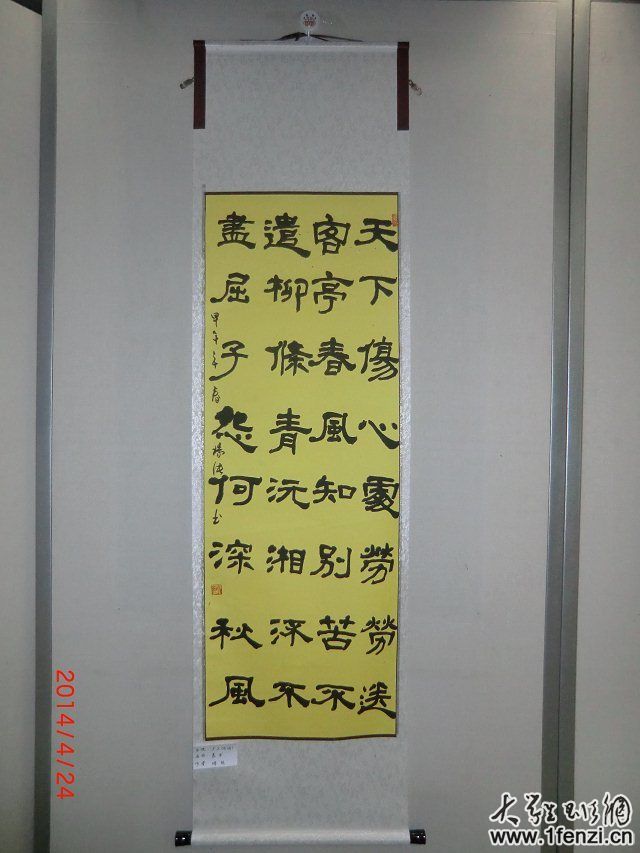 天下傷心處勞勞送
客亭春風知別苦不
遣柳條青沅湘流不
盡屈子怨何深秋風
甲午年春楊書
2014/4/24
大學生現網
www.1fenzi.cn